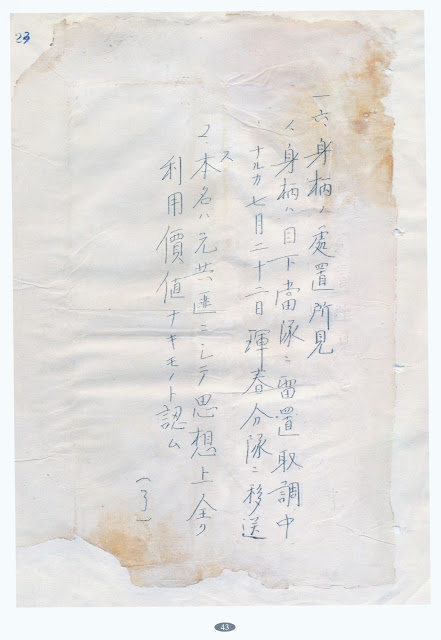 23
一六、身柄ノ處置所見
1、身柄ハ目下當隊ニ留置取調中
ナルカ七月二十二日琿春分隊ニ移送
ス
2、本名ハ元共匪ニシテ思想上全ク
利用價値ナキモノト認ム
(了)
43